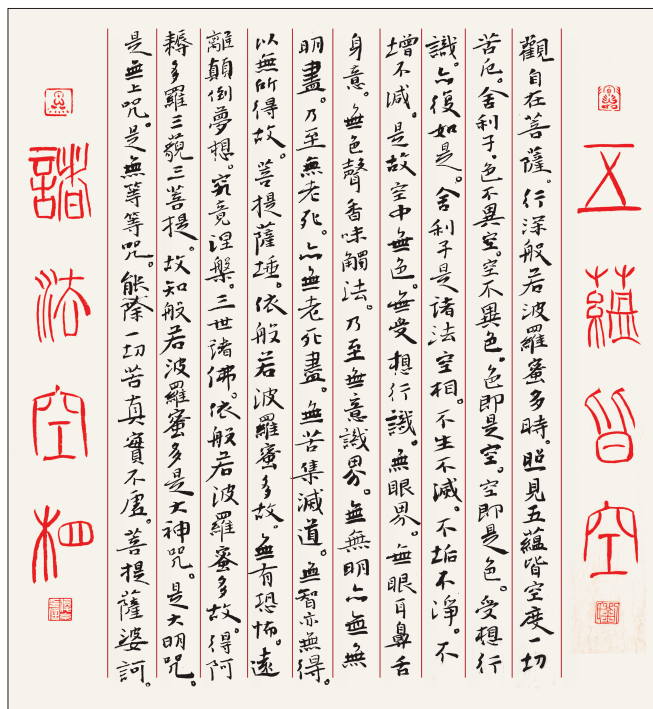 五蘊皆空
觀自在菩薩。行深般若波羅蜜多時。照見五蘊皆空度一切
苦厄。舍利子。色不異空。空不異色。色即是空。空即是色。受想行
識。亦復如是。舍利子是諸法空相。不生不滅。不垢不淨。不
增不減。是故空中無色。無受想行識。無眼界。無眼耳鼻舌
身意。無色聲香味觸法。乃至無意識界。無無明亦無無
明盡。乃至無老死。亦無老死盡。無苦集滅道。無智亦無得。
以無所得故。菩提薩埵。依般若波羅蜜多故。無有恐怖。遠
離顛倒夢想。究竟涅槃。三世諸佛。依般若波羅蜜多故。得阿
耨多羅三藐三菩提。故知般若波羅蜜多是大神咒。是大明咒。
是無上咒。是無等等咒。能除一切苦真實不虛。菩提薩婆訶。
諸法空相